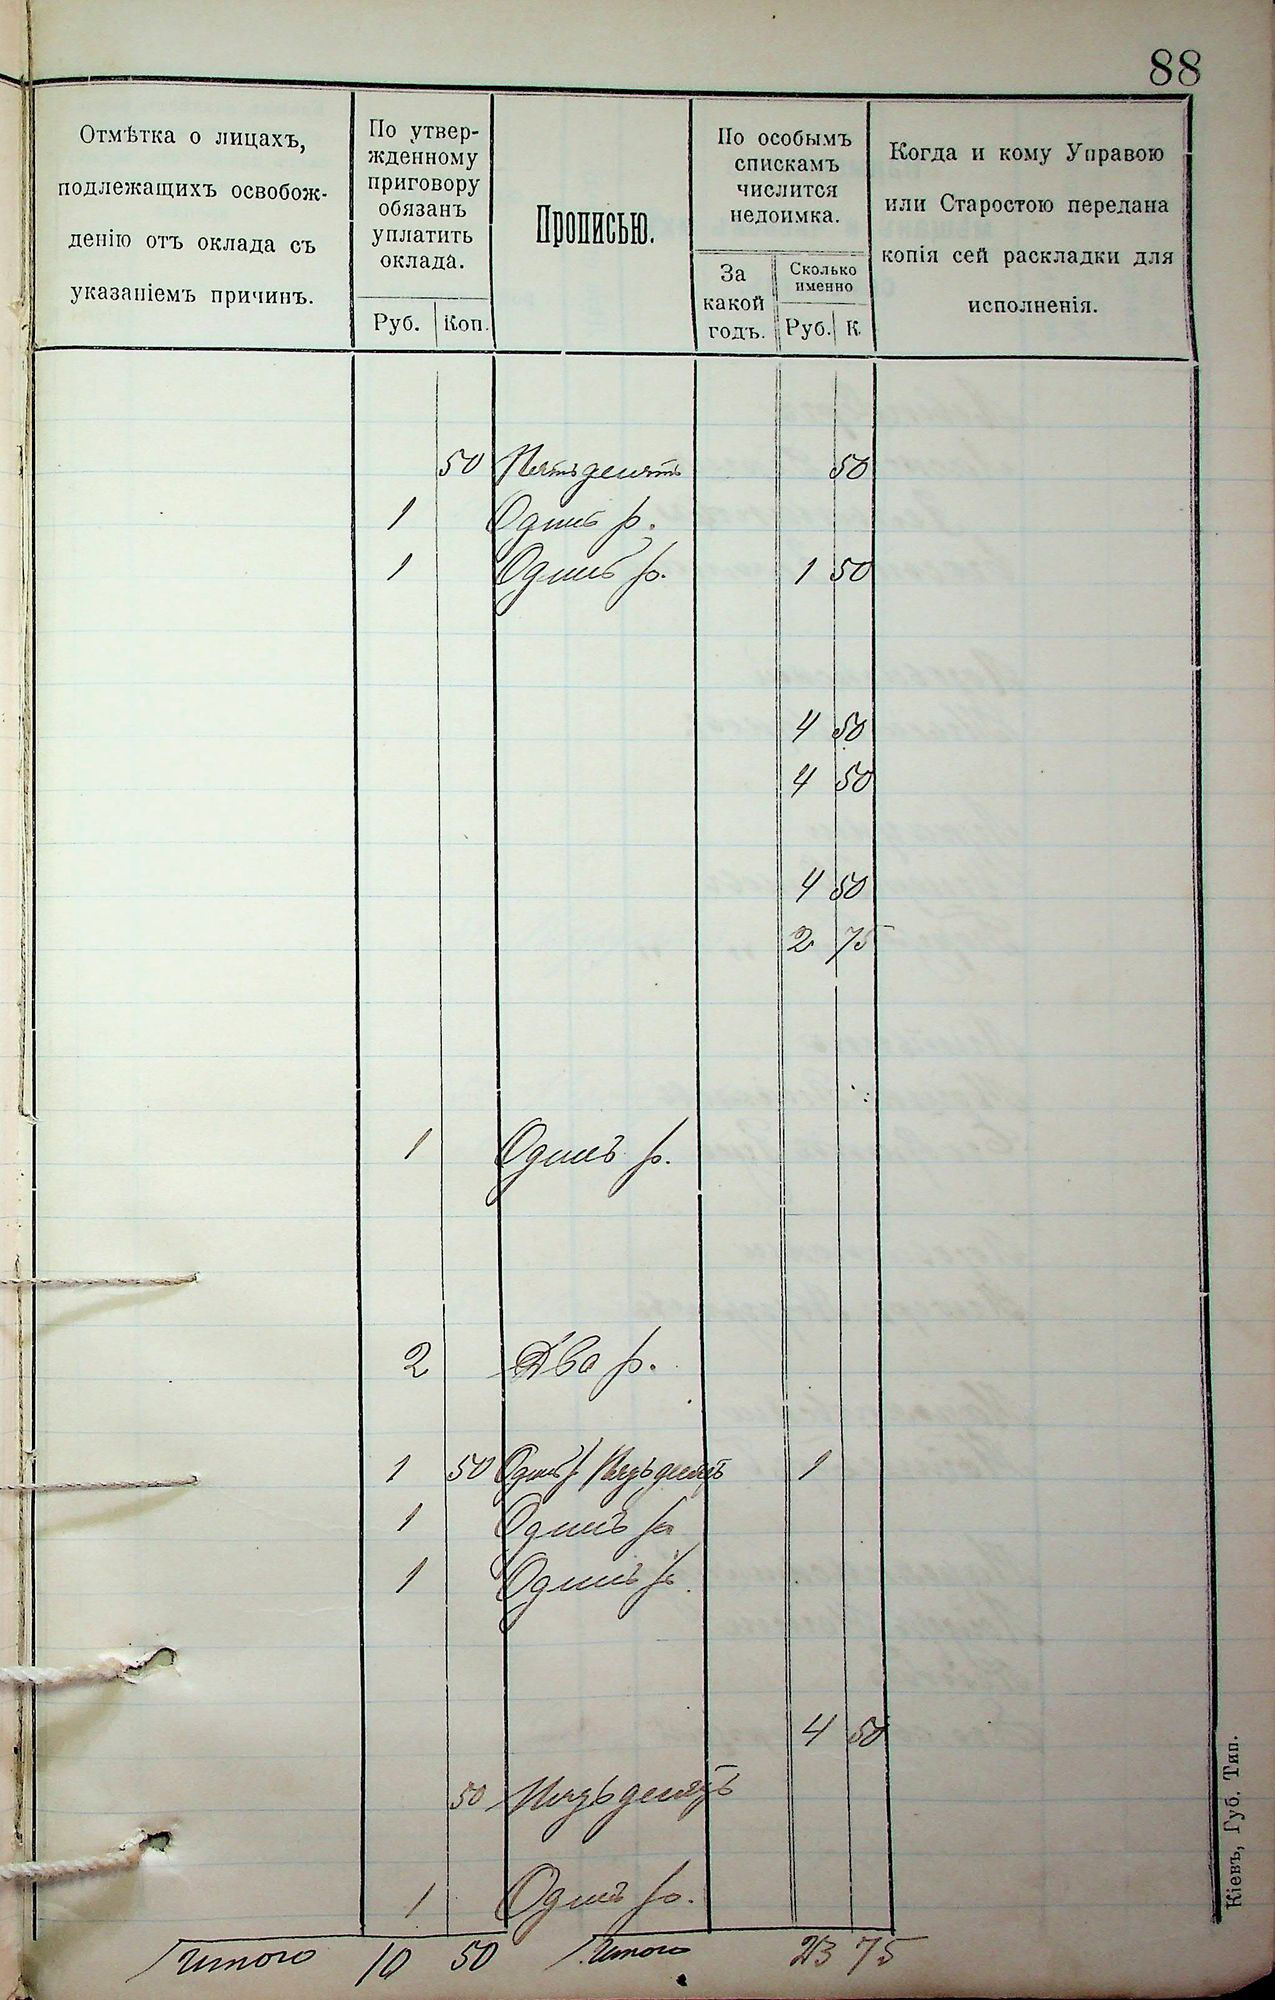 88
Отмѣтка о лицахъ,
подлежащихъ освобож-
денію отъ оклада съ
указаніемъ причинъ.
По утвер-
жденному
приговору
обязанъ
уплатить
оклада.
Руб. Коп.
Прописью.
По особымъ
спискамъ
числится
недоимка.
За
какой
годъ.
Сколько
именно
Руб. К.
Когда и кому Управою
или Старостою передана
копія сей раскладки для
исполненія.
50 Пятьдесятъ 50
1 Одинъ р.
1 Одинъ р. 1 50
4 50
4 50
4 50
2 75
1 Одинъ р.
2 Два р.
1 50 Одинъ р Пядьдесятъ 1
1 Одинъ р
1 Одинъ р.
4 50
50 Пядьдесятъ
1 Одинъ р.
Итого 10 50 Итого 23 75
Кіевъ, Губ. Тип.